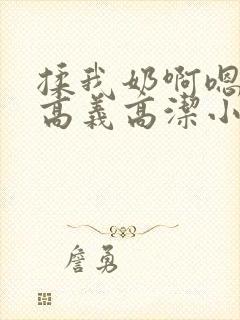 揉我奶啊嗯
高义高潔小
詹勇